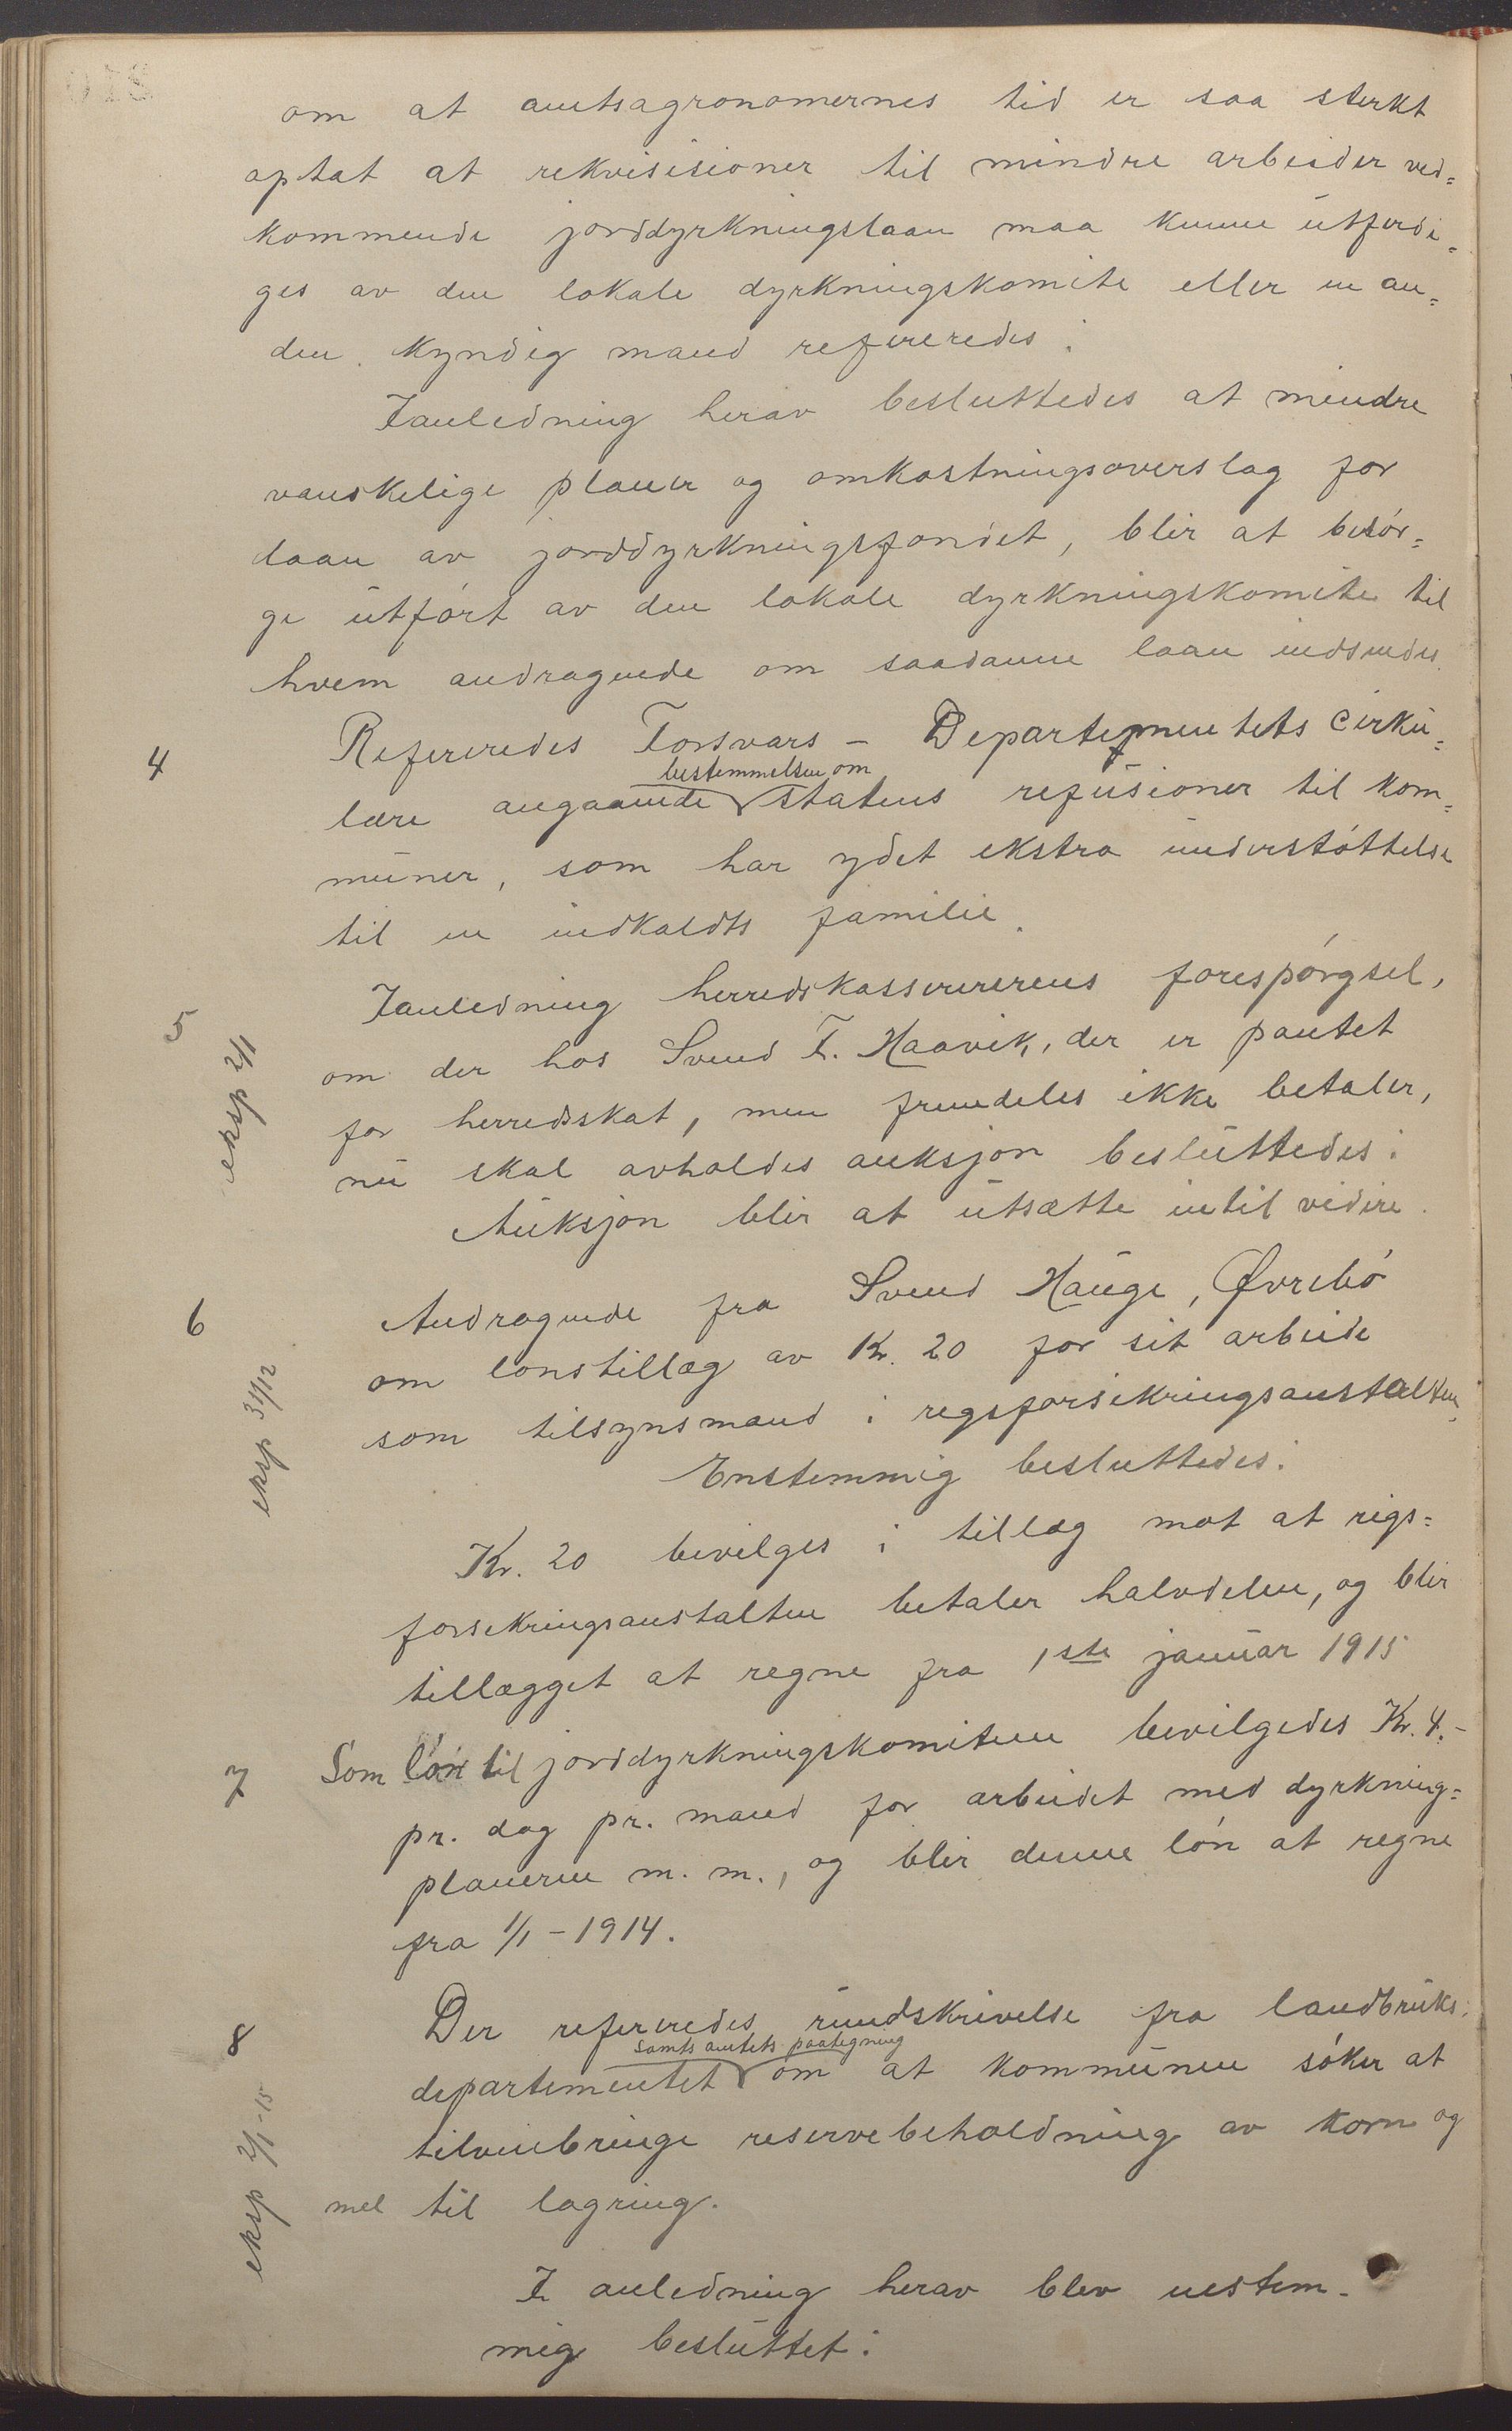 om at amtsagronomernes tid er saa sterkt
optat at rekvisisioner til mindre arbeider ved=
kommende jorddyrkningslaan maa kunne utferdi=
ges av den lokale dyrkningskomite eller en an=
den kyndig mand refereredes:
Ianledning herav besluttedes at mindre
vanskelige planer og omkostningsoverslag for
laan av jorddyrkningsfondet, blir at besór=
ge utfórt av den lokale dyrkningskomite til
hvem andragende om saadanne laan indsendes.
4 Refereredes Forsvars - Departementets cirku=
bestemmelsen om
lære angaaende statens refusioner til kom=
muner, som har ydet ekstra understóttelse
til en indkaldts familie.
5 Ianledning herredskassererens forespórgsel,
eksp 2/1
om der hos Svend T. Haavik, der er pantet
for herredsskat, men fremdeles ikke betaler,
nu skal avholdes auksjon besluttedes:
Auksjon blir at utsætte intil videre.
6 Andragende fra Svend Hauge, Øvrebó
om lonstillæg av Kr. 20 for sit arbeide
eksp 31/12
som tilsynsmand i regsforsikringsanstalten.
Enstemmig besluttedes:
Kr. 20 bevilges i tillæg mot at rigs=
forsikringsanstalten betaler halvdelen, og blir
tillægget at regne fra 1ste januar 1915
7 Som lón til jorddyrkningskomiteen bevilgedes Kr. 4.-
pr. dag pr. mand for arbeidet med dyrkning=
planerne m. m., og blir denne lón at regne
fra 1/1 - 1914.
8 Der refereredes rundskrivelse fra landbruks=
samt amtets paategning
departementet om at kommunen sóker at
eksp 2/1-15
tilveiebringe reservebeholdning av korn og
mel til lagring.
I anledning herav blev enstem-
mig besluttet: